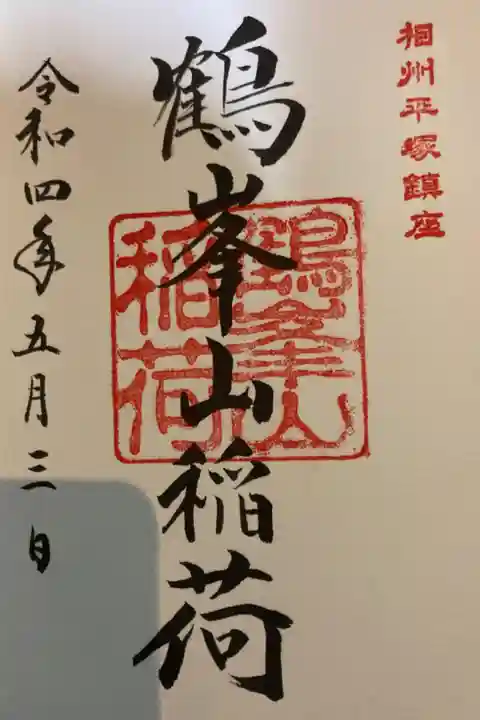 相州平塚鎮座
鶴峯山稲荷
鶴峯山
稲荷
令和四年五月三日